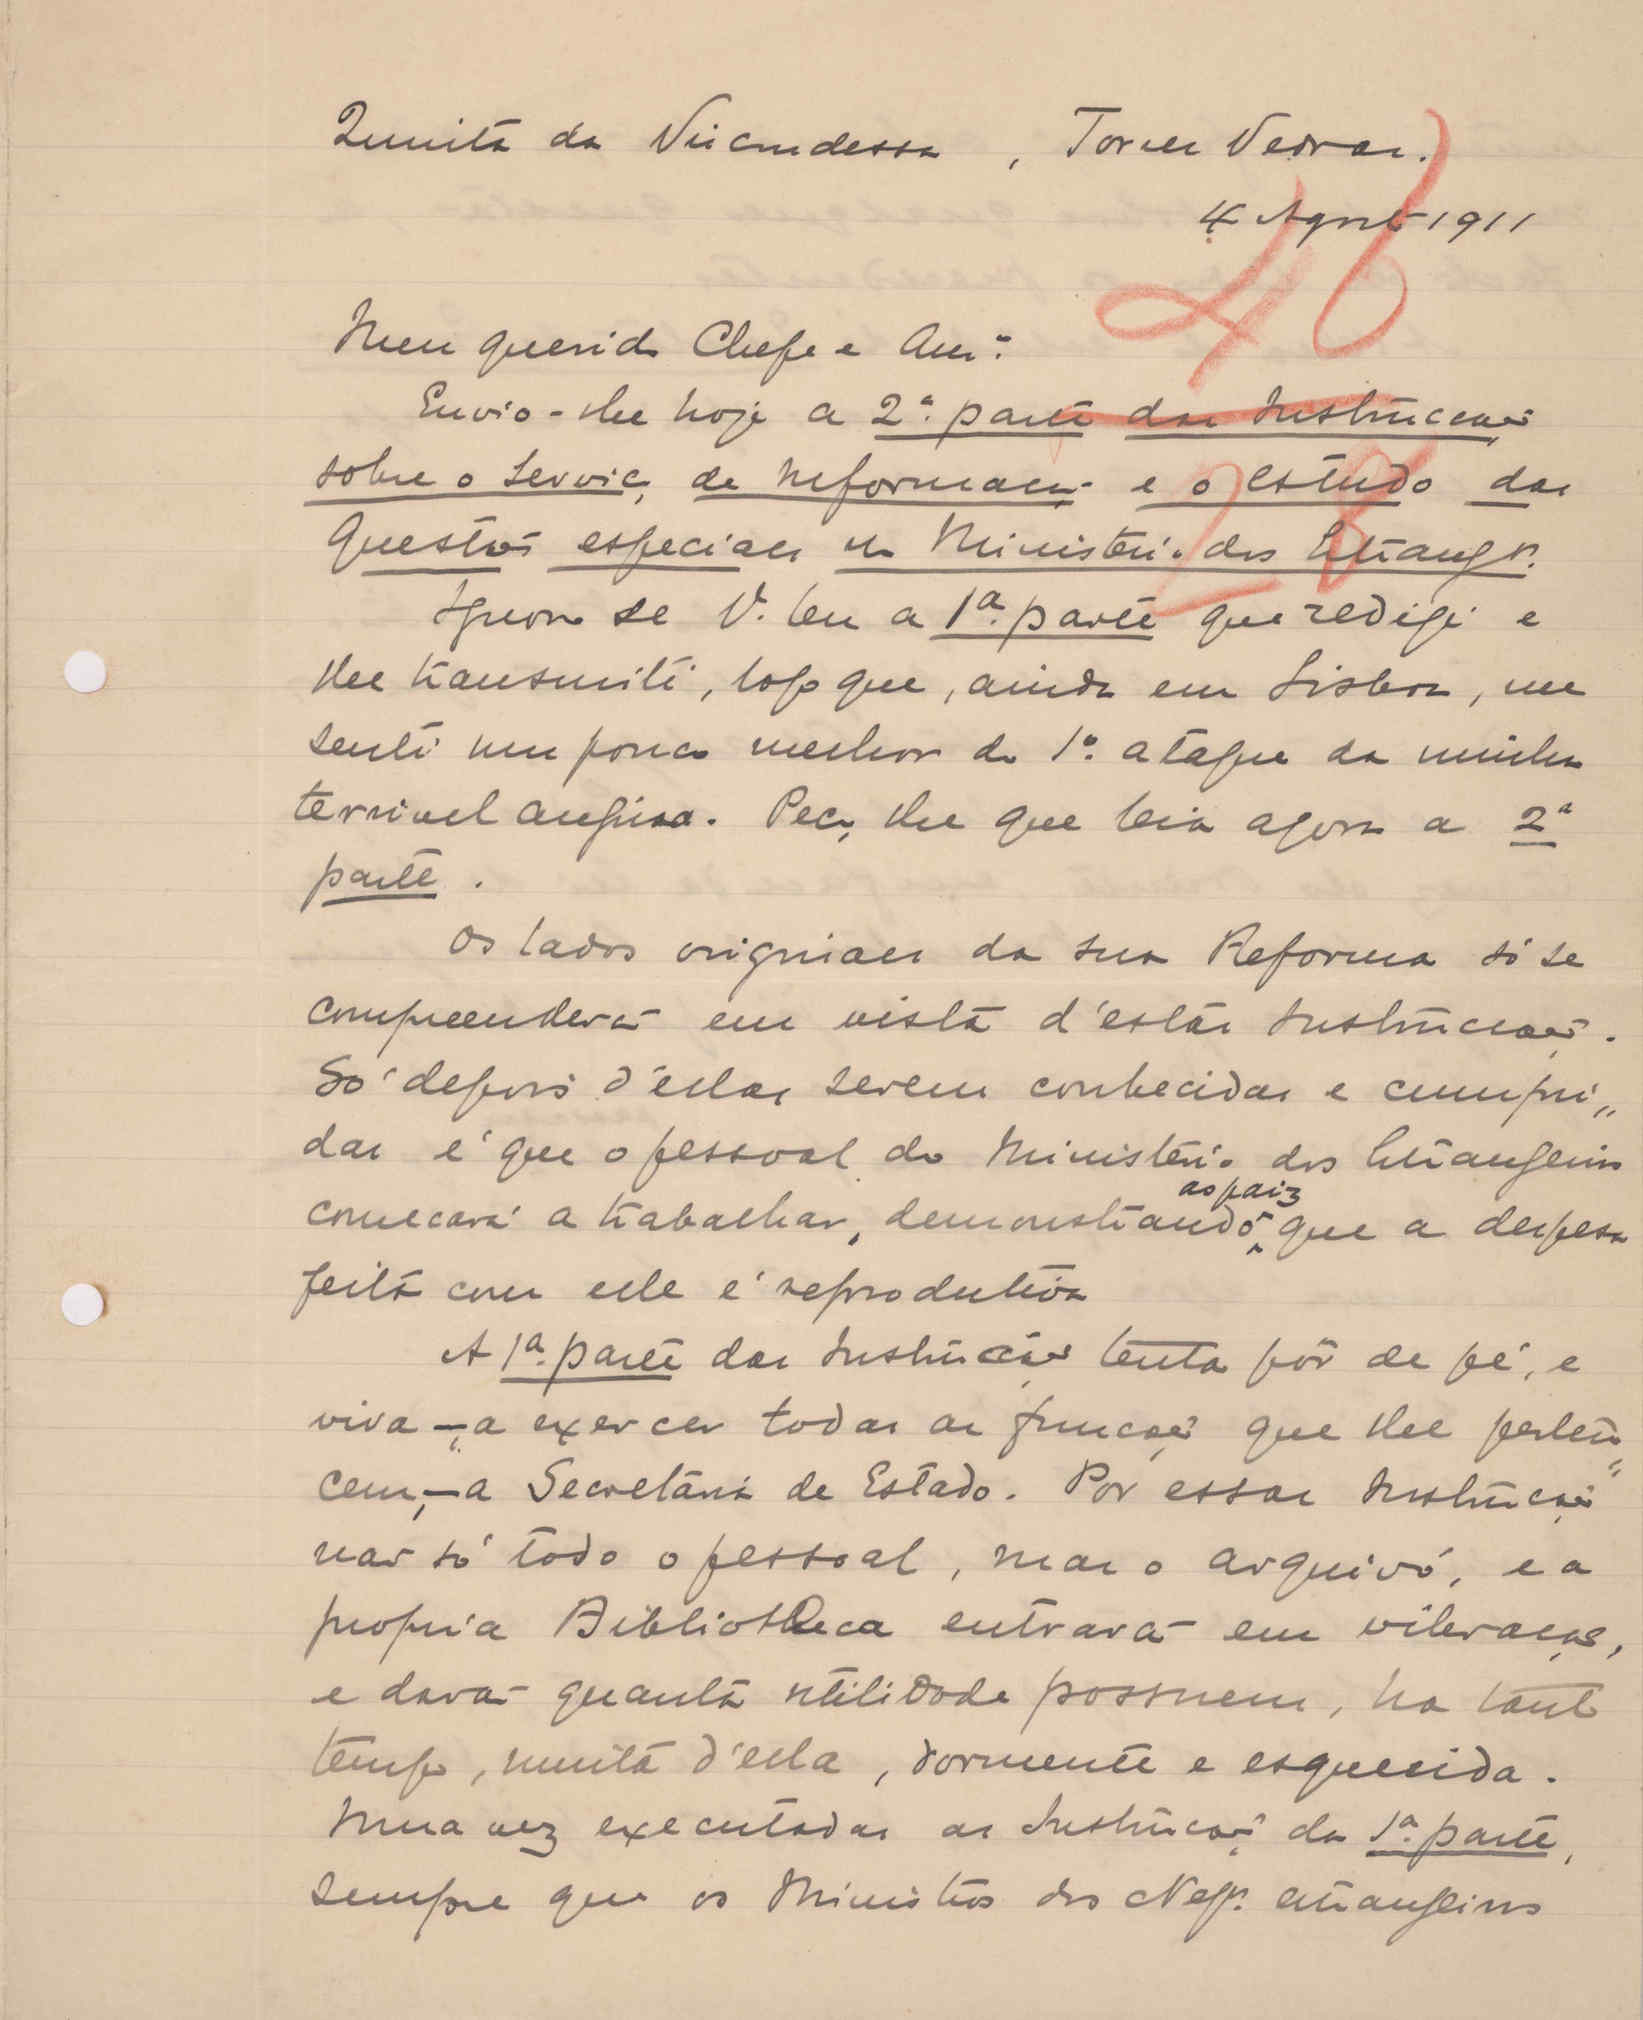 Quinta da Viscondessa, Torres Vedras.
4 Agosto 1911
46
Meu querido Chefe e Amº:
Envio-lhe hoje a 2ª. parte das Instrucções
sobre o Serviço de Informação e o estudo das
Questões especiaes no Ministerio dos Estrangrs.
28
Ignoro se V. leu a 1ª. parte que redigi e
lhe transmiti, logo que, ainda em Lisboa, me
senti um pouco melhor do 1º. ataque da minha
terrivel angina. Peço, lhe que leia agora a 2ª
parte.
Os lados originaes da sua Reforma só se
compreenderão em vista d'estas Instrucções.
Só depois d'ellas serem conhecidas e cumpri„
das é que o pessoal do Ministério dos Estrangeiros
começará a trabalhar, demonstrando ao paiz que a despesa
feita com elle é reprodutiva
A 1ª. parte das Instrucções tenta pôr de pé, e
viva —, a exercer todas as funcções que lhe perten„
cem, — a Secretaria de Estado. Por essas Instrucções
não só todo o pessoal, mas o arquivo, e a
propria Bibliotheca entrarão em vibração,
e darão quanta utilidade possuem, ha tanto
tempo, muita d'ella, dormente e esquecida.
Uma vez executadas as Instrucções da 1ª. parte,
sempre que os Ministros dos Negs. estrangeiros